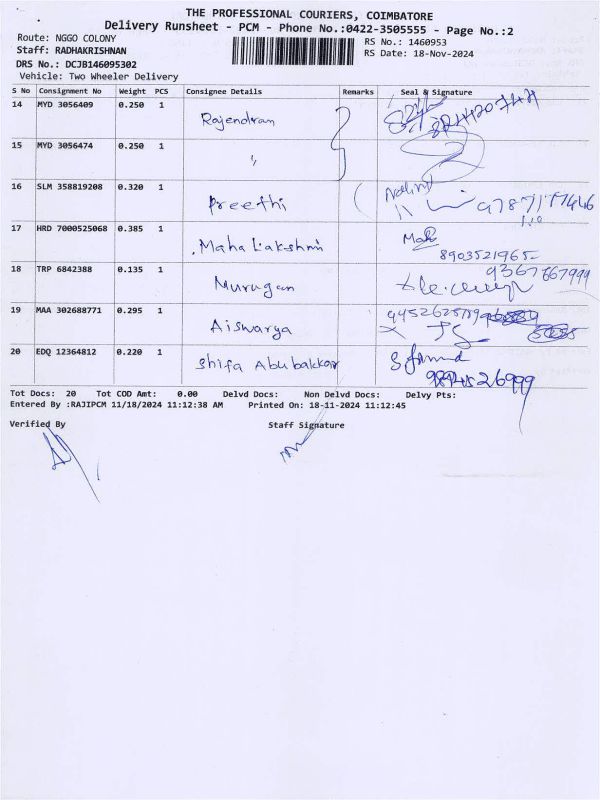 THE PROFESSIONAL COURIERS, COIMBATORE
Delivery Runsheet - PCM - Phone No.:0422-3505555 - Page No.:2
Route: NGGO COLONY
RS No.: 1460953
Staff: RADHAKRISHNAN
RS Date: 18-Nov-2024
DRS No.: DCJB146095302
Vehicle: Two Wheeler Delivery
S No Consignment No Weight PCS Consignee Details Remarks Seal & Signature
14 MYD 3056409 0.250 1 Rajendran
15 MYD 3056474 0.250 1 "
16 SLM 358819208 0.320 1 Preethi
17 HRD 7000525068 0.385 1 Maha Lakshmi
8903521965
18 TRP 6842388 0.135 1 Murugan
19 MAA 302688771 0.295 1 Aiswarya
20 EDQ 12364812 0.220 1 Shifa Abubakkar
Tot Docs: 20 Tot COD Amt: 0.00 Delvd Docs: Non Delvd Docs: Delvy Pts:
Entered By :RAJIPCM 11/18/2024 11:12:38 AM Printed On: 18-11-2024 11:12:45
Verified By Staff Signature